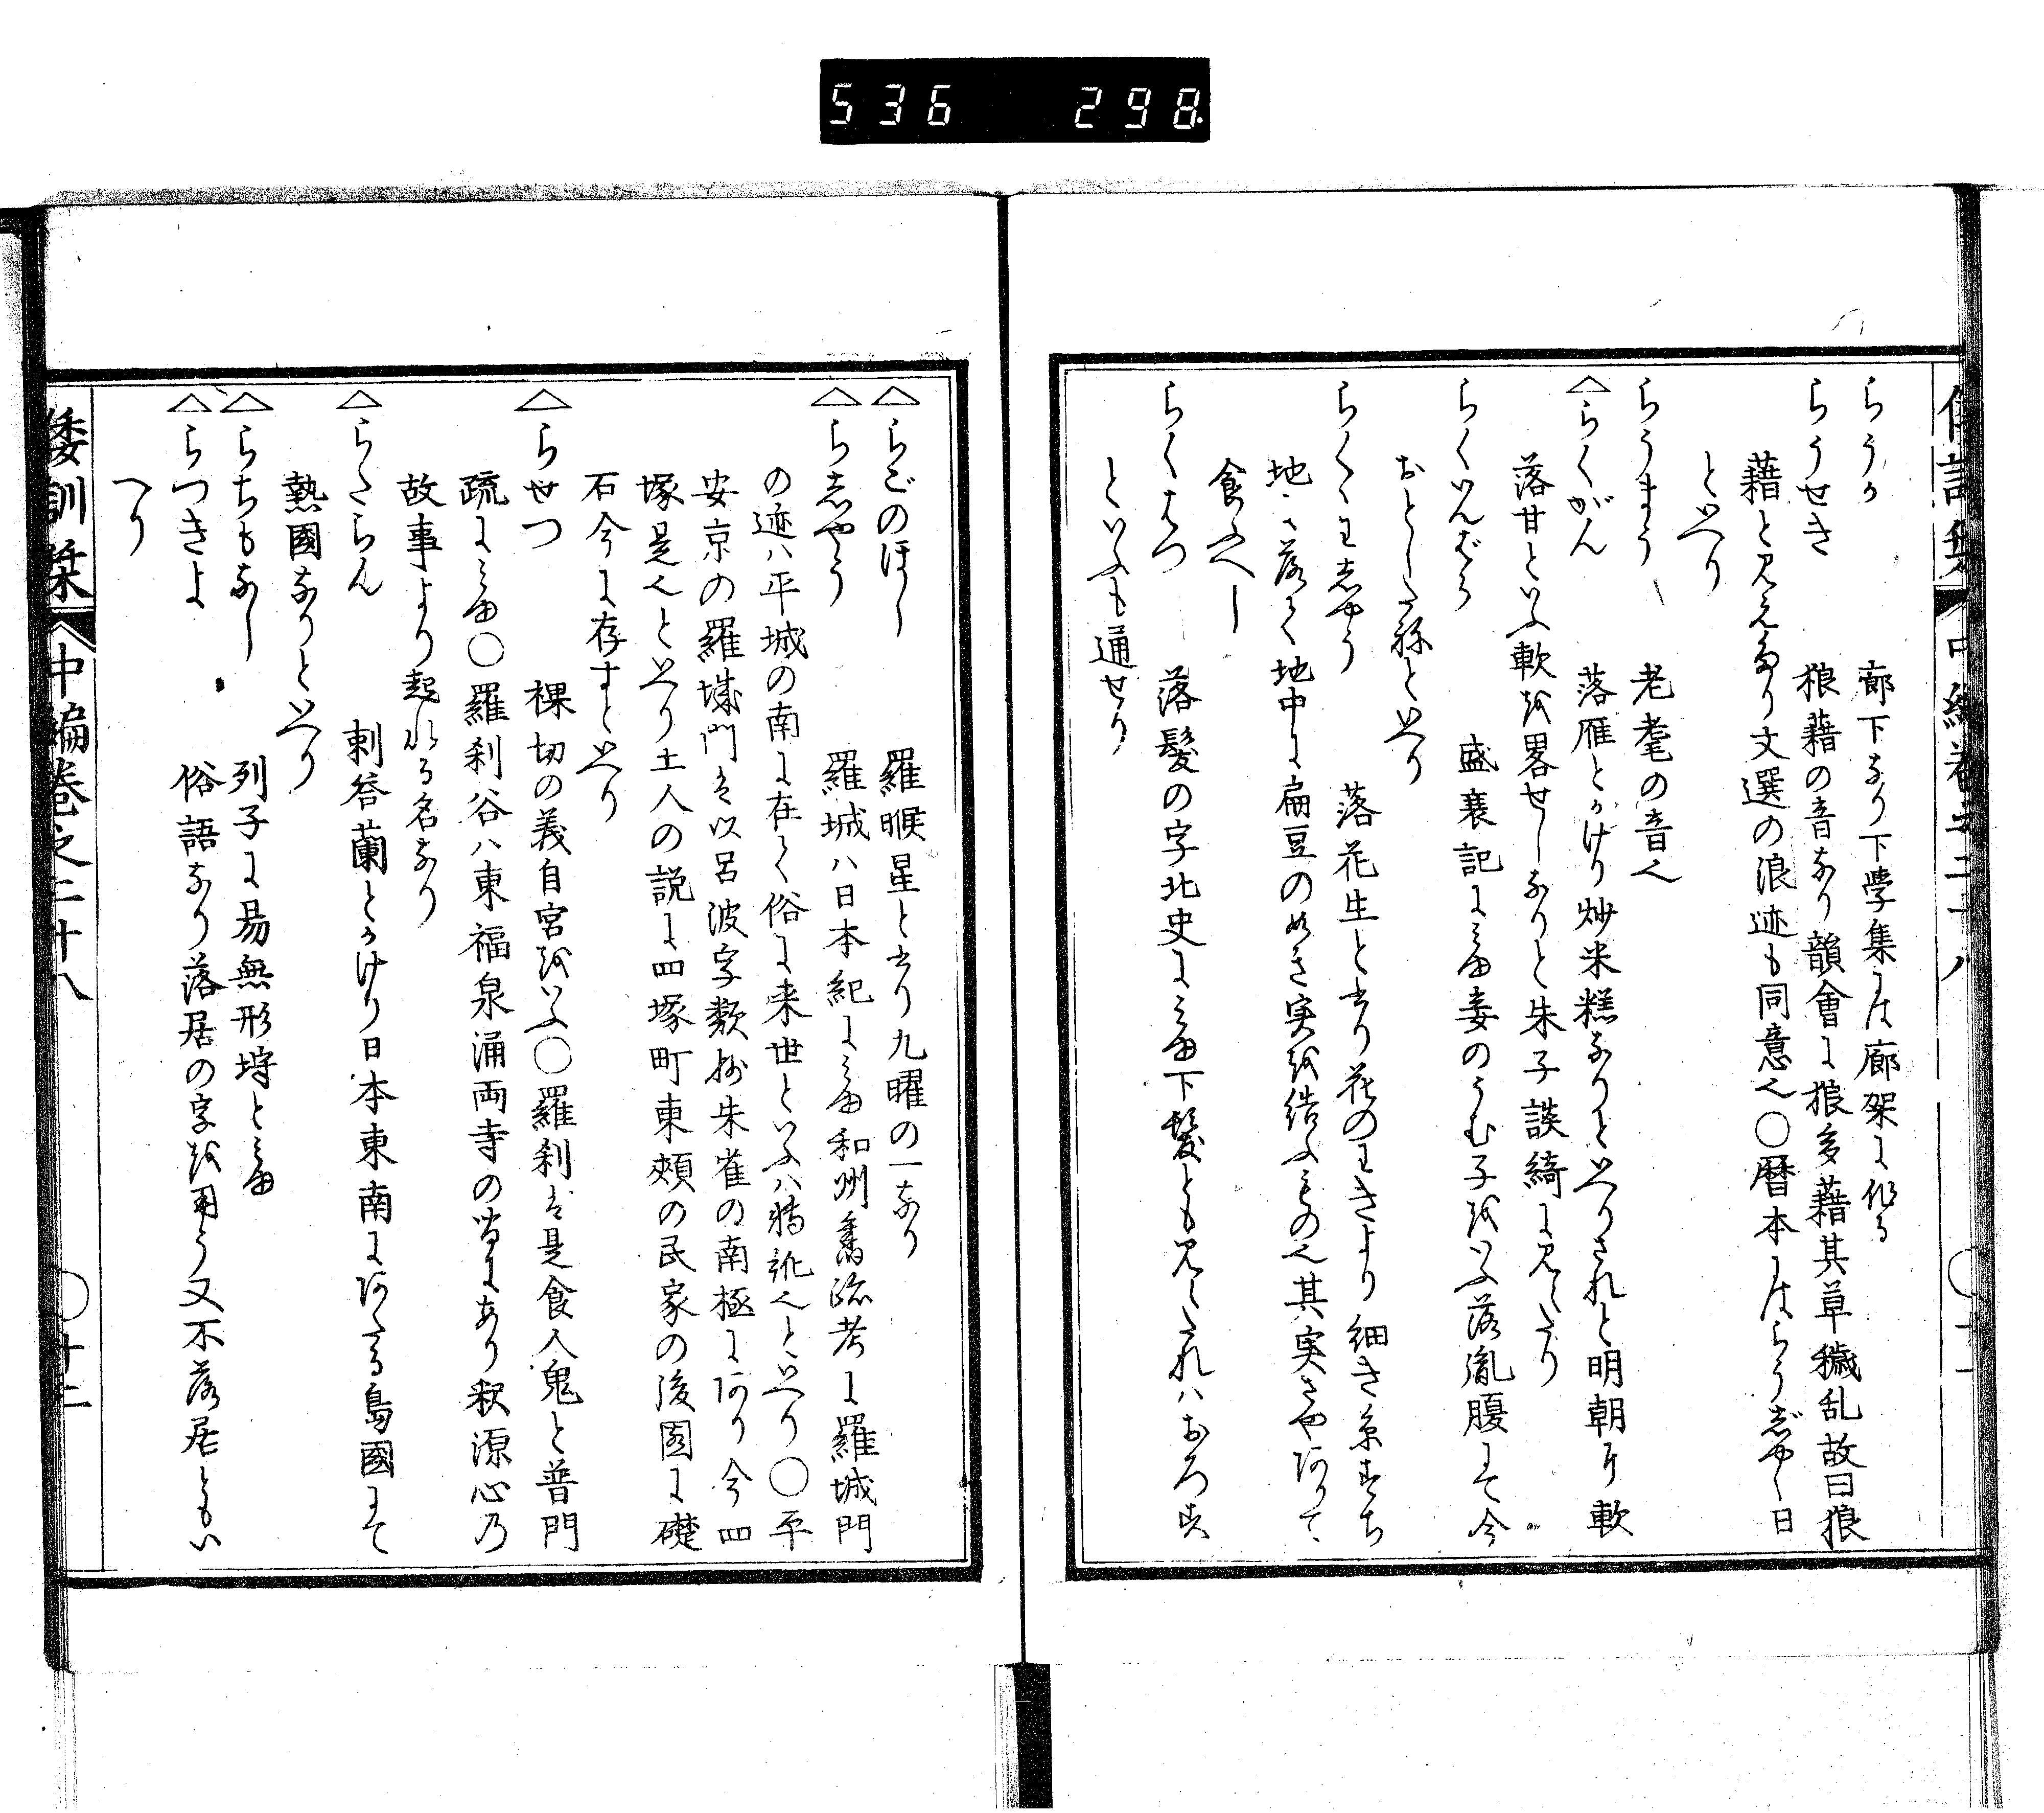 536 298
らうか 廊下なり下学集には廊架に作る
らうせき 狼藉の音なり韻會に狼多藉其草穢乱故曰狼
藉と見えたり文選の浪迹も同意也〇暦本にはらうぜや〳〵日
といへり
らうまう 老耄の音也
△らくがん 落雁とかけり炒米糕なりといへりされと明朝に軟
落甘といふ軟を畧せしなりと朱子談綺に見えたり
らくいんばら 盛衰記にみゆ妾のうむ子をいふ落胤腹にて今
おとしたねといへり
らくくわしやう 落花生と書り花のわきより細き糸すち
地に落て地中に扁豆の如き実を結ふもの也其実さやありて
食ふへし
らくはつ 落髪の字北史にみゆ下髪とも見えたれハおろす
といふも通せり
△らごのほし 羅睺星と書り九曜の一なり
△らしやう 羅城ハ日本紀にみゆ和州舊跡考に羅城門
の迹ハ平城の南に在て俗に来世といふハ轉訛也といへり〇平
安京の羅城門は以呂波字類抄朱雀の南極にあり今四
塚是也といへり土人の説に四塚町東頬の民家の後園に礎
石今に存すといへり
△らせつ 裸切の義自宮をいふ〇羅刹は是食人鬼と普門
疏にみゆ〇羅刹谷ハ東福泉涌両寺の間にあり釈源心乃
故事より起れる名なり
△らたらん 剌答蘭とかけり日本東南にあたる島國にて
熱國なりといへり
△らちもなし 列子に易無形埒とみゆ
△らつきよ 俗語なり落居の字を用う又不落居ともい
へり
倭訓栞 中編巻之二十八 〇十二